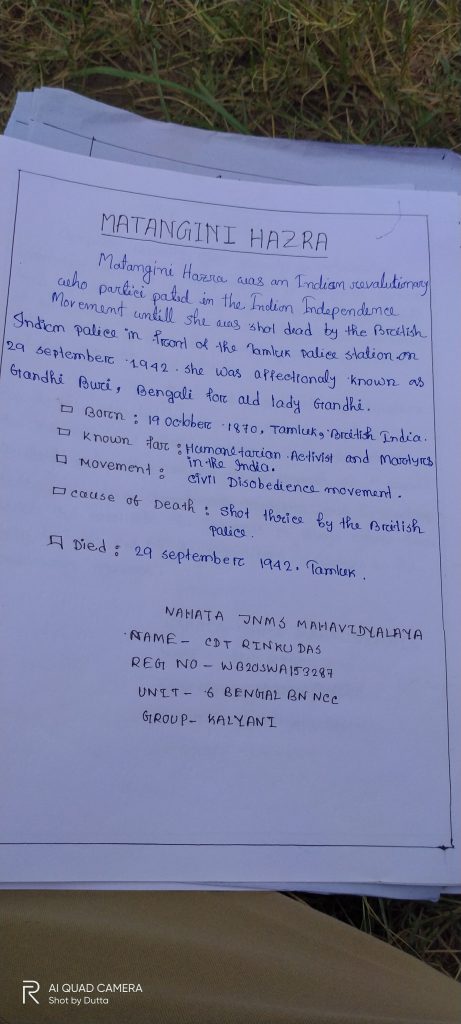 MATANGINI HAZRA
Matangini Hazra was an Indian revolutionary
who partici pated in the Indian Independence
Movement untill she was shot dead by the British
Indian police in front of the Tamluk police station on
29 september 1942. she was affectionaly known as
Gandhi Buri, Bengali for old lady Gandhi.
Born : 19 october 1870, Tamluk, British India.
Known for : Humanetarian Activist and Marotyrs
in the India.
Movement : civil Disobedience movement.
cause of Death : shot thrice by the British
police.
Died : 29 september 1942. Tamluk.
NAHATA JNMS MAHAVIDYALAYA
NAME- CDT RINKU DAS
REG NO - WB20SWA153287
UNIT- 6 BENGAL BN NCC
GROUP- KALYANI
AI QUAD CAMERA
Shot by Dutta